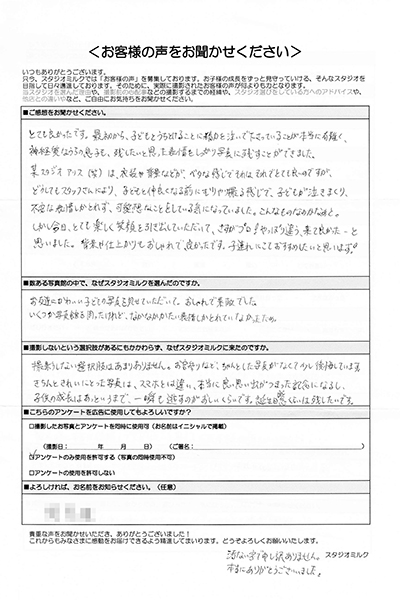 ＜お客様の声をお聞かせください＞
いつもありがとうございます。
只今、スタジオミルクでは「お客様の声」を募集しております。お子様の成長をずっと見守っていける、そんなスタジオを
目指して日々邁進しております。そのために、実際に撮影されたお客様の声が何よりも力となります。
当スタジオを選んだ理由や、撮影前の心配事などの撮影するまでの経緯や、スタジオ選びをしている方へのアドバイスや、
他店との違いやなど、ご自由にお気持ちをお聞かせください。
■ご感想をお聞かせください。
とても良かったです。最初から、子どもとうちとけることに精力を注いで下さっていることが本当に有難く、
神経質なうちの息子も、残したいと思った表情をしっかり写真に残すことができました。
某スタジオアリス(笑)は、衣装や背景などが、ベタな感じでそれはそれでとても良いのですが、
どれもスタッフさんにより、子どもと仲良くなる前にもりやり撮る感じで、子どもが泣きまくり、
不安な表情しかとれず、可愛想なことをしている気になっていました。こんなものなのかなあと。
しかし今日、とても楽しく笑顔を引き出していただいて、さすがプロ!やっぱり違う、来て良かったーと
思いました。背景や仕上がりもおしゃれで、良かったです。子連れにもおすすめしたいと思います。
■数ある写真館の中で、なぜスタジオミルクを選んだのですか。
お友達にかわいい子どもの写真を見せていただいて。おしゃれで素敵でした。
いくつか写真館を周ったけれど、なかなかかたい表情しかとれていなかったため。
■撮影しないという選択肢がある中にもかかわらず、なぜスタジオミルクに来たのですか。
撮影をしない選択肢はあまりありません。お宮参りなど、ちゃんとした写真がなくて少し後悔しています。
きちんととれいにとった写真は、スマホとは違い、本当に良い思い出がつまった記念になるし、
子供の成長はあっというまで、一瞬も逃すのがおしいくらいです。誕生日くらいは残したいです。
■こちらのアンケートを広告に使用してもよろしいですか？
□撮影したお写真とアンケートを同時に使用可（お名前はイニシャルで掲載）
（撮影日：　　年　　月　　日）（ご署名：　　　　　）
☑アンケートのみ使用を許可する（写真の同時使用不可）
□アンケートの使用を許可しない
■よろしければ、お名前をお知らせください。（任意）
貴重な声をお聞かせいただき、ありがとうございました！
これからもみなさまに感動をお届けできるよう精進してまいります。どうぞよろしくお願いいたします。
スタジオミルク
汚ない字で申し訳ありません。
本当にありがとうございました。